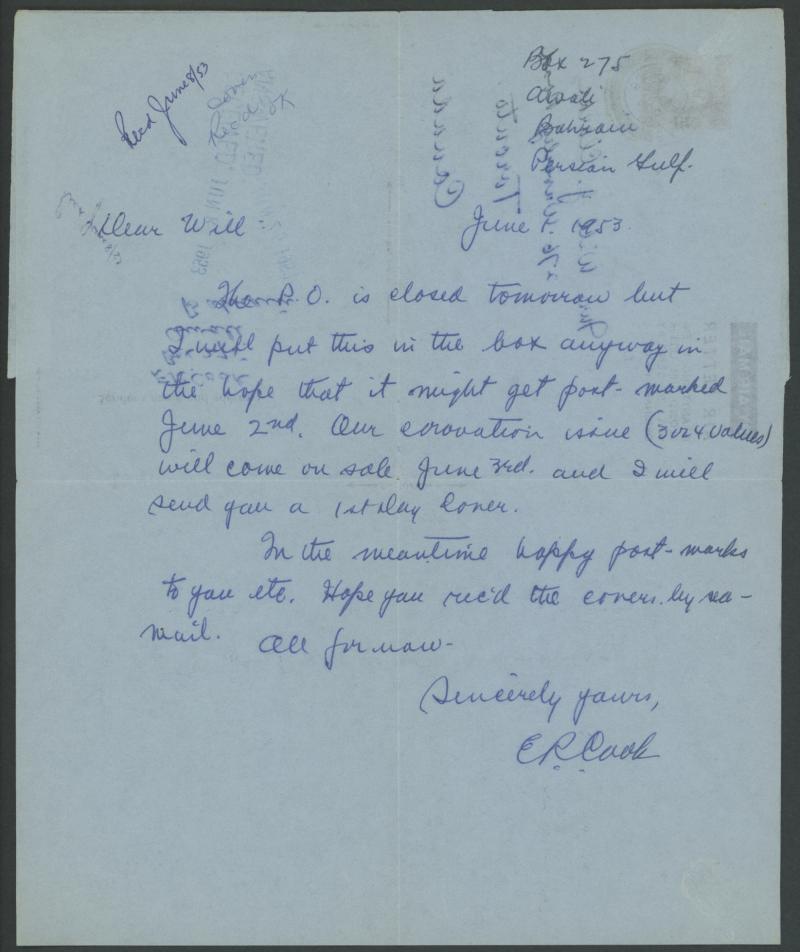 Rec'd June 8/53
Covers
Rec'd
OK
Box 275
Awali
Bahrain
Persian Gulf.
Dear Will
June 1. 1953.
The P.O. is closed tomorrow but
I will put this in the box anyway in
the hope that it might get post-marked
June 2nd. Our coronation issue (3 or 4 values)
will come on sale June 3rd. and I will
send you a 1st Day Cover.
In the meantime happy post-marks
to you etc. Hope you rec'd the covers by sea-
mail. All for now-
Sincerely yours,
E.R. Cook
Toronto
Canada